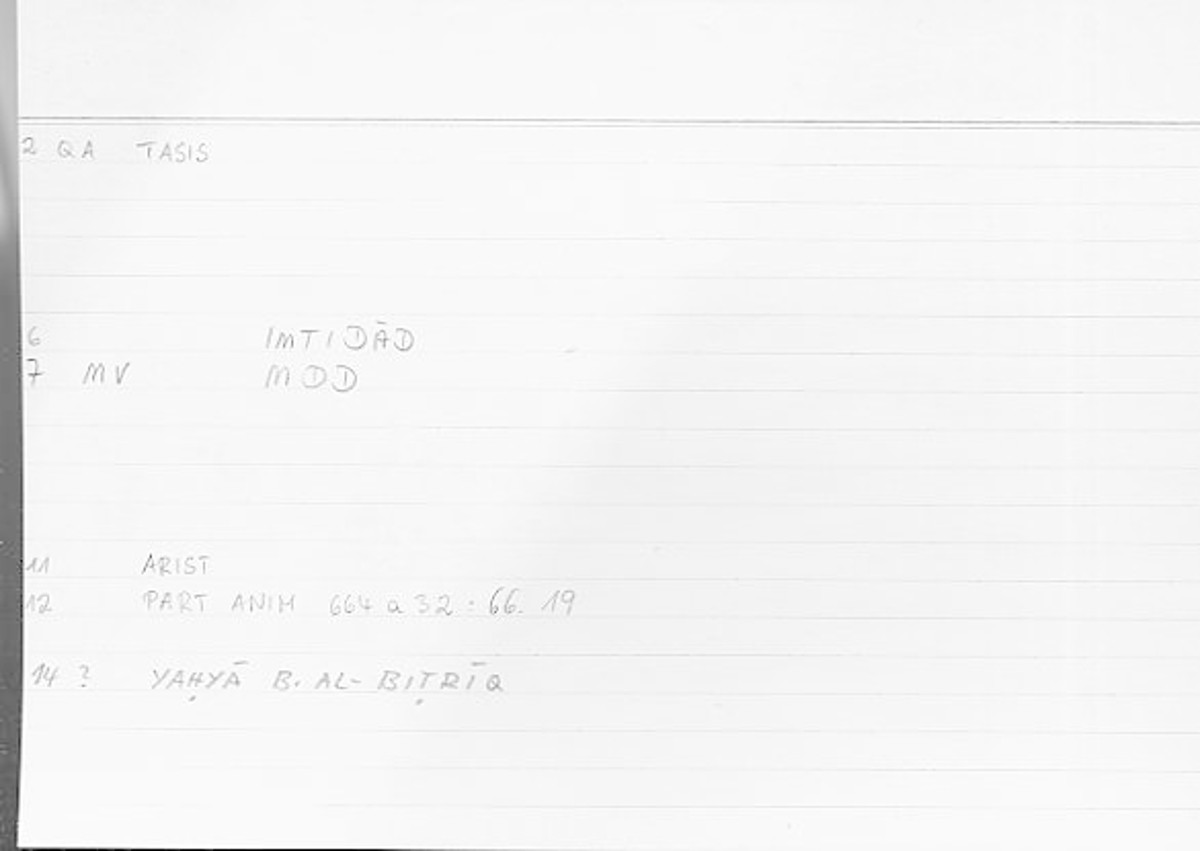 2 QA TASIS
6 IMTIDĀD
7 MV MDD
11 ARIST
12 PART ANIM 664 a 32 : 66. 19
14 ? YAḤYĀ B. AL-BIṬRĪQ